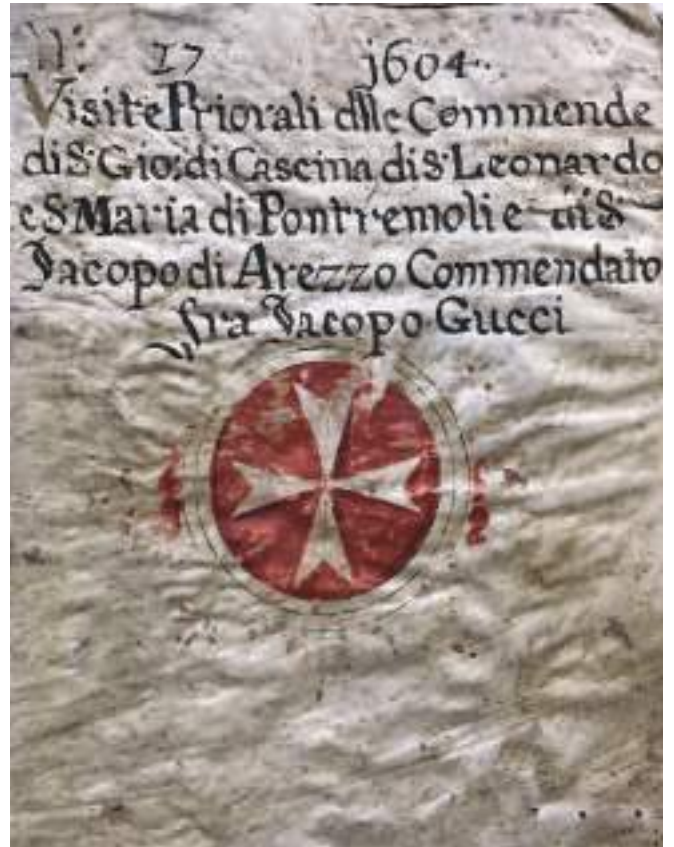 N: 17 1604..
Visite Priorali dlle Commende
di S. Gio: di Cascina di S. Leonardo
e S Maria di Pontremoli e di S.
Jacopo di Arezzo Commendato
fra Jacopo Gucci